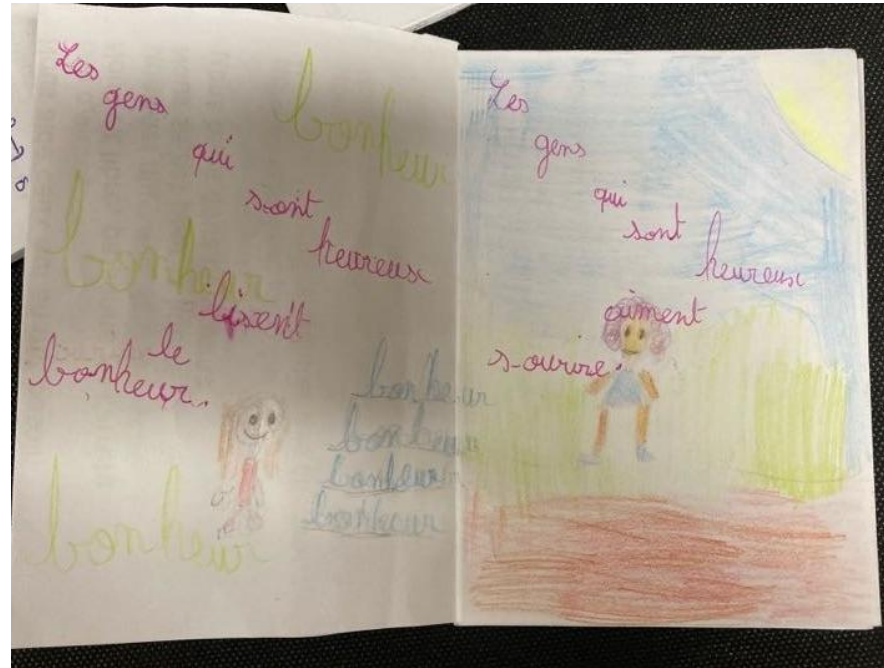 Les
gens
qui
sont
heureux
lisent
le
bonheur.
bonheur
bonheur
bonheur
bonheur
bonheur
bonheur
bonheur
Les
gens
qui
sont
heureux
aiment
sourire.